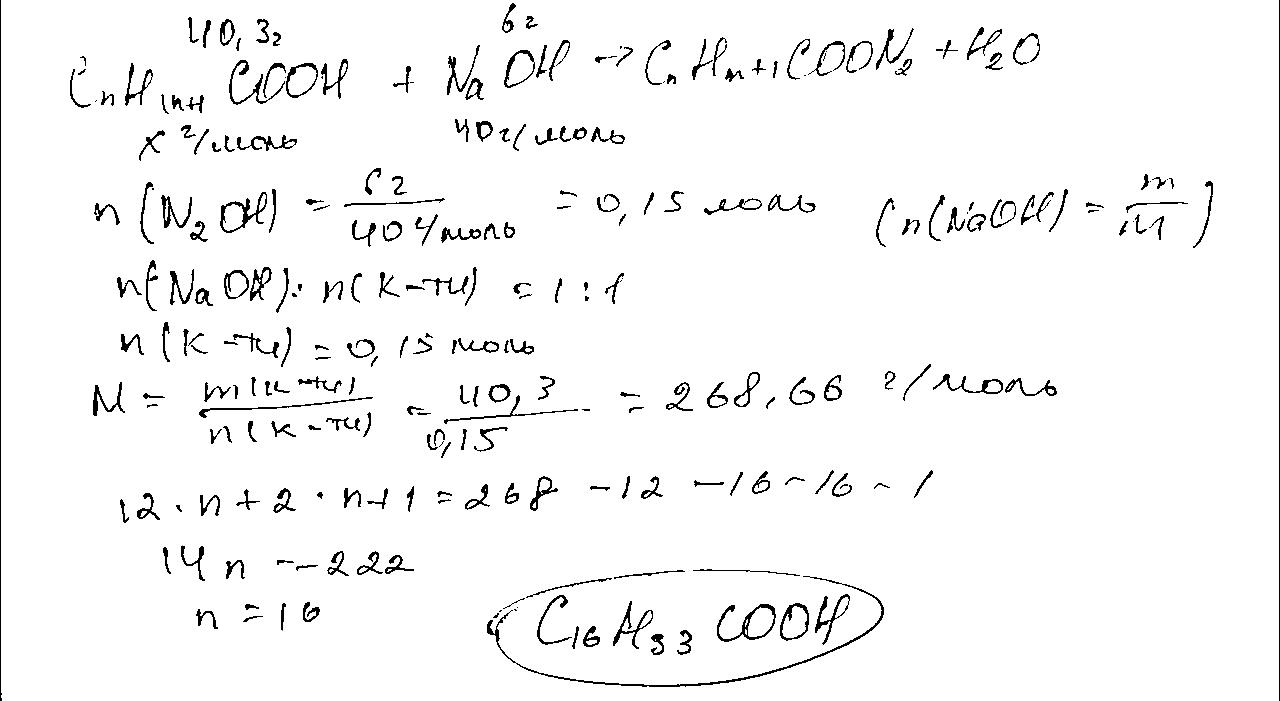 40,3г 6г
CnH2n+1 COOH + NaOH → CnH2n+1COONa + H2O
x г/моль 40 г/моль
n(NaOH) = 6г/40 г/моль = 0,15 моль (n(NaOH) = m/M)
n(NaOH): n(к-ты) = 1:1
n(к-ты) = 0,15 моль
M = m(к-ты)/n(к-ты) = 40,3/0,15 = 268,66 г/моль
12·n+2·n+1=268 -12 -16-16-1
14n = 222
n = 16
C16H33COOH